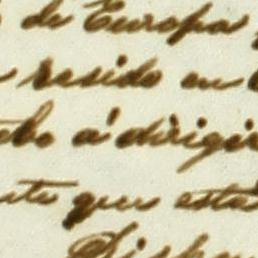 de Europa
resido en
á dirigir
que esta